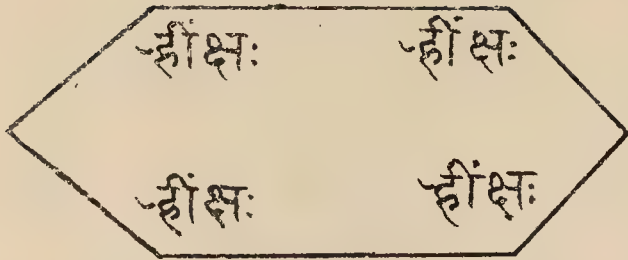 ह्रीं क्षः ह्रीं क्षः
ह्रीं क्षः ह्रीं क्षः